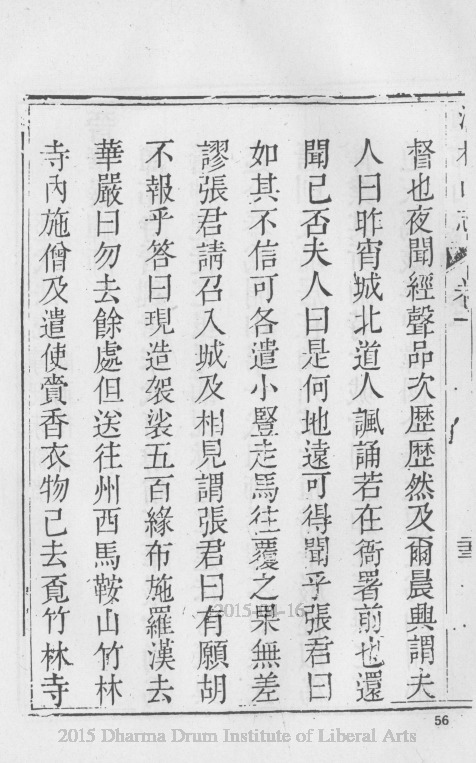 督也夜聞經聲品次歷歷然及爾晨興謂夫
人曰昨宵城北道人諷誦若在衙署前也還
聞已否夫人曰是何地遠可得聞乎張君曰
如其不信可各遣小豎走馬往覆之果無差
謬張君請召入城及相見謂張君曰有願胡
不報乎答曰現造袈裟五百緣布施羅漢去
華嚴曰勿去餘處但送往州西馬鞍山竹林
寺內施僧及遣使賫香衣物已去覔竹林寺
2015-04-16
56
2015 Dharma Drum Institute of Liberal Arts